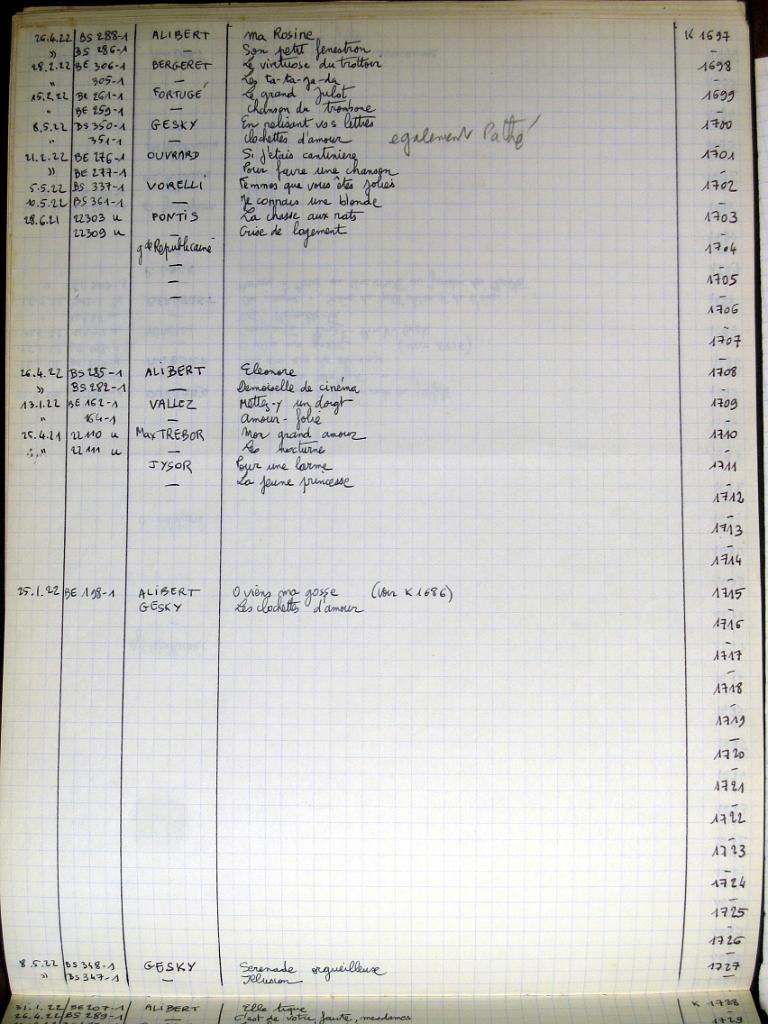 26.4.22 BS 288-1 ALIBERT Ma Rosine K 1697
" BS 286-1 — Son petit fenestron —
28.2.22 BE 306-1 BERGERET Le virtuose du trottoir 1698
" 305-1 — Les ta-ta-ja-da —
15.2.22 BE 261-1 FORTUGÉ Le grand Julot 1699
" BE 259-1 — Chanson du trombone —
8.5.22 BS 350-1 GESKY En relisant vos lettres 1700
" 351-1 — Clochettes d'amour egalement Pathé —
21.2.22 BE 276-1 OUVRARD Si j'étais cantinière 1701
" BE 277-1 — Pour faire une chanson —
5.5.22 BS 337-1 VORELLI Femmes que vous êtes jolies 1702
10.5.22 BS 361-1 — Je connais une blonde —
28.6.21 22303 u PONTIS La chasse aux rats 1703
22309 u — Crise de logement —
gde Républicaine 1704
— —
— 1705
— —
1706
—
1707
—
26.4.22 BS 285-1 ALIBERT Eleonore 1708
" BS 282-1 — Demoiselle de cinéma —
13.1.22 BE 162-1 VALLEZ Mettez-y un doigt 1709
" 164-1 — Amour-folie —
25.4.21 22110 u Max TREBOR Mon grand amour 1710
" " 22111 u — Les nocturne —
JYSOR Pour une larme 1711
— La jeune princesse —
1712
—
1713
—
1714
—
25.1.22 BE 198-1 ALIBERT O viens ma gosse (voir K 1686) 1715
GESKY Les clochettes d'amour —
1716
—
1717
—
1718
—
1719
—
1720
—
1721
—
1722
—
1723
—
1724
—
1725
—
1726
—
8.5.22 BS 348-1 GESKY Sérénade orgueilleuse 1727
" BS 347-1 — Illusion —
31.1.22 BE 207-1 ALIBERT Elle tique K 1728
26.4.22 BS 289-1 — C'est de votre faute, mesdames —
1729